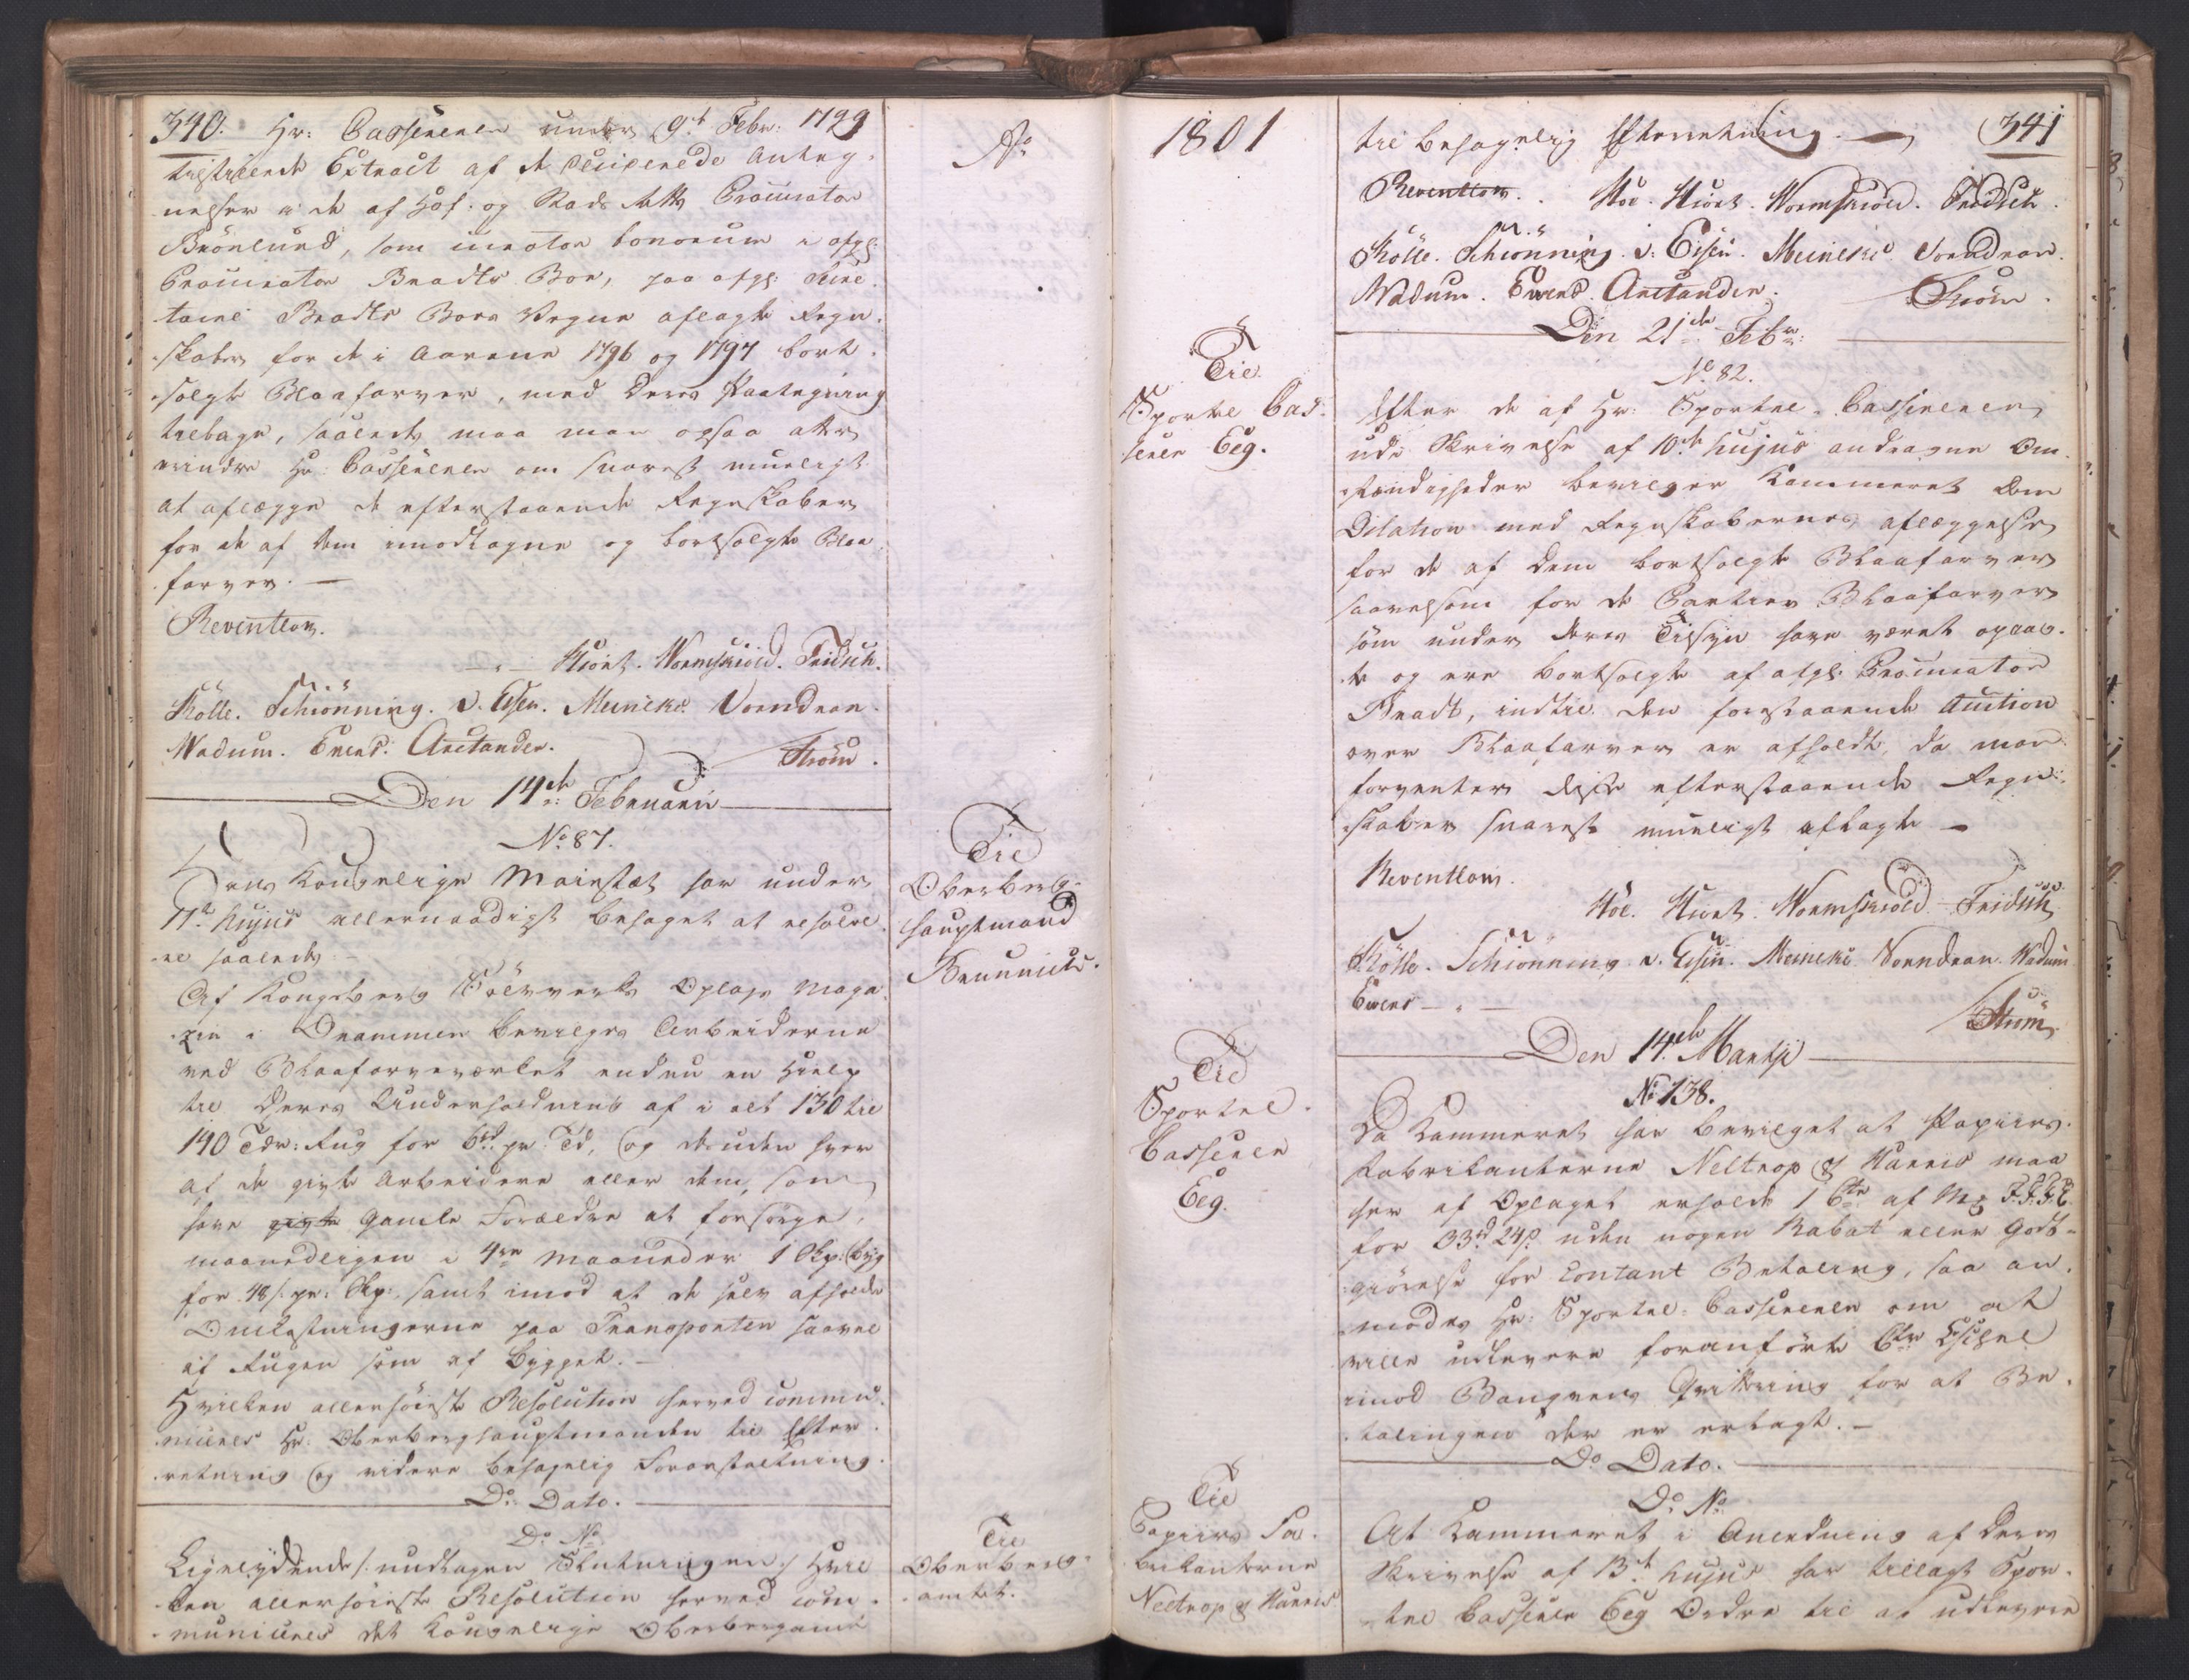 340. Hr: Casserer under 9de Febr: 1799
tilstillede Extract af de deciderede Anteg-
nelser i de af Hof- og Stads Retts Procurator
Brönlund, som curator bonorum i afg:
Procurator Bradts Boe, paa afg:
Bradts Boes Vegne aflagte Regn-
skaber for de i Aarene 1796 og 1797 bort-
solgte Blaafarver, med Deres Paategning
tilbage, saaledes maa man ogsaa atter
erindre Hr: Casserer om snarest mueligt
at aflægge de efterstaaende Regnskaber
for de af Dem imodtagne og bortsolgte Blaa-
farver. —
Reventlow.
Hiort. Wormskiold. Fridsch.
Kölle. Schiönning. v. Essen. Meincke. Vorndran.
Wadum. Evers. Arctander.
Ström.
Den 14de Februarii
No. 87.
Hans Kongelige Maiestæt har under
11te hujus allernaadigst behaget at resolve-
re saaledes:
Af Kongsberg Sölvverks Oplags Maga-
zin i Drammen bevilges Arbeiderne
ved Blaafarveværket endnu en Hielp
til Deres Underholdning af i alt 130 til
140 Tdr: Rug for 6rd pr. Td, og desuden hver
af de givte Arbeidere eller dem, som
have givte gamle Forældre at forsörge,
maanedligen i 4re Maaneder 1 Skp: Byg
for 48 s. pr: Skp: samt imod at de selv afholde
Omkostningerne paa Transporten saavel
af Rugen som af Bygget. —
Hvilken allerhöieste Resolution herved commu-
niceres Hr: Oberberghauptmanden til Efter-
retning og videre behagelig Foranstaltning.
Do. Dato.
Do. No.
Ligelydende /: undtagen Slutningen :/ Hvil-
ken allerhöieste Resolution herved com-
municeres det Kongelige Oberbergamt
Ao
Til
Oberberg-
hauptmand
Brünnich.
Til
Oberberg-
amtet.
1801
Til
Sportel Cas-
serer Eeg.
Til
Sportel-
Casserer
Eeg.
Til
Papiirs Fa-
brikanterne
Neltrop & Harris
341
til behagelig Efterretning. —
Reventlow. Höe. Hiort. Wormskiold. Fridsch.
Kölle. Schiönning. v. Essen. Meincke. Vorndran.
Wadum. Evers. Arctander.
Ström.
Den 21de Febr:
No. 82.
Efter de af Hr: Sportel-Casserer
udi Skrivelse af 10de hujus andragne Om-
stændigheder bevilger Kammeret Dem
Dilation med Regnskabernes aflæggelse
for de af Dem bortsolgte Blaafarver
saavelsom for de Partier Blaafarver
som under Deres Tilsyn have været oplag-
te og ere bortsolgte af afg: Procurator
Bradt, indtil den forestaaende Auction
over Blaafarver er afholdt, da man
forventer disse efterstaaende Regn-
skaber snarest mueligt aflagte —
Reventlow.
Höe. Hiort. Wormskiold. Fridsch.
Kölle. Schiönning. v. Essen. Meincke. Vorndran. Wadum
Evers —
Ström.
Den 14de Martji
No. 138.
Da Kammeret har bevilget at Papiirs-
fabrikanterne Neltrop & Harris maa
her af Oplaget erholde 1 Ctr af Mz F.F.F.E
for 33rd 24s uden nogen Rabat eller Godt-
giörelse for contant Betaling, saa an-
modes Hr: Sportel-Casserer om at
ville udlevere foranförte Ctr Eschel
imod Vedkommendes Qvittering for at Be-
talingen der er erlagt. —
Do Dato.
Do. No.
At Kammeret i Anledning af Deres
Skrivelse af 13de hujus har tillagt Spor-
tel Casserer Eeg Ordre til at udlevere